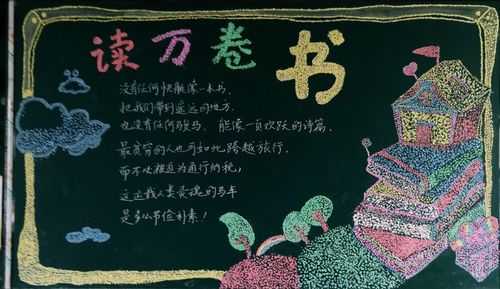 读万卷书
没有任何快艇像一本书，
把我们带到遥远的地方，
也没有任何骏马，能像一页欢跃的诗篇，
最贫穷的人也可如此跨越旅行，
而不必担忧为通行纳税，
这运载人类灵魂的马车
是多么节俭朴素！